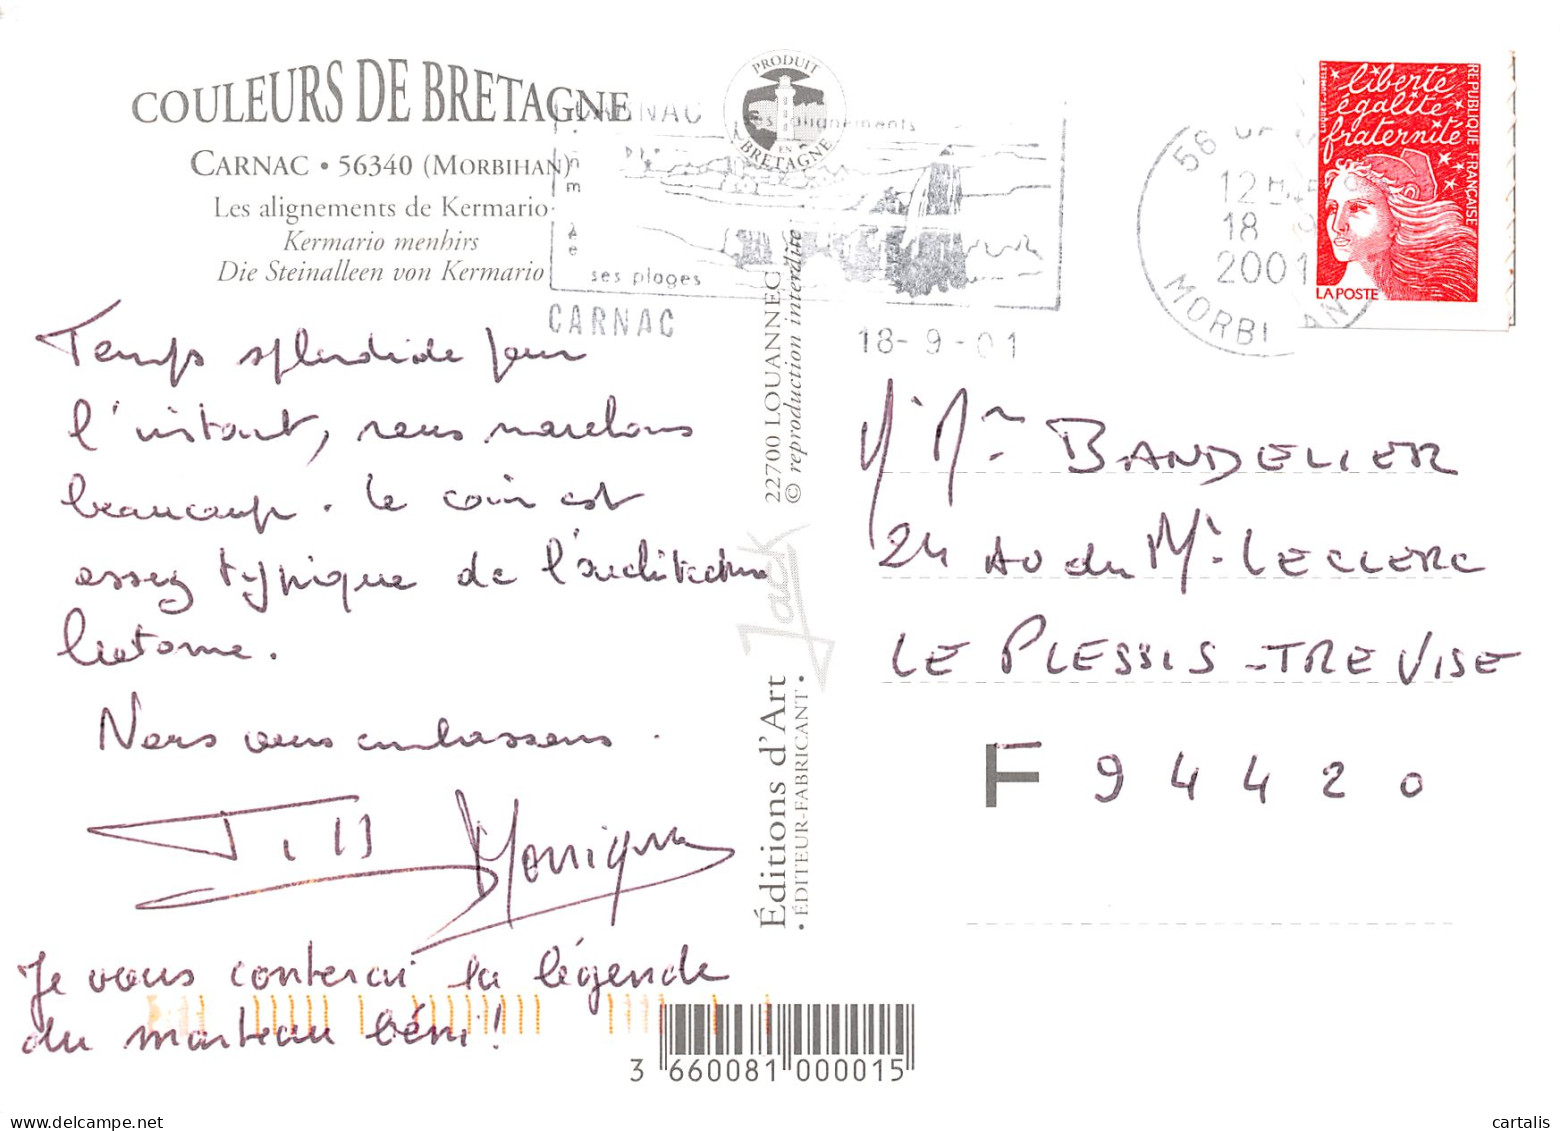 COULEURS DE BRETAGNE
CARNAC • 56340 (MORBIHAN)
Les alignements de Kermario
Kermario menhirs
Die Steinalleen von Kermario
PRODUIT
EN
BRETAGNE
CARNAC
ses alignements
ses plages
CARNAC
18-9-01
12H
18 9
2001
MORBIHAN
liberté
égalité
fraternité
REPUBLIQUE FRANÇAISE
LA POSTE
Temps splendide pour
l'instant, nous marchons
beaucoup. Le coin est
assez typique de l'architecture
bretonne.
Nous vous embrassons.
Monique
Je vous conterai la légende
du marteau béni !
22700 LOUANNEC
© reproduction interdite
Jack
Éditions d'Art
• ÉDITEUR-FABRICANT •
M. Mme BANDELIER
24 Av du Ml LECLERC
LE PLESSIS-TREVISE
F 94420
3 660081 000015
cartalis